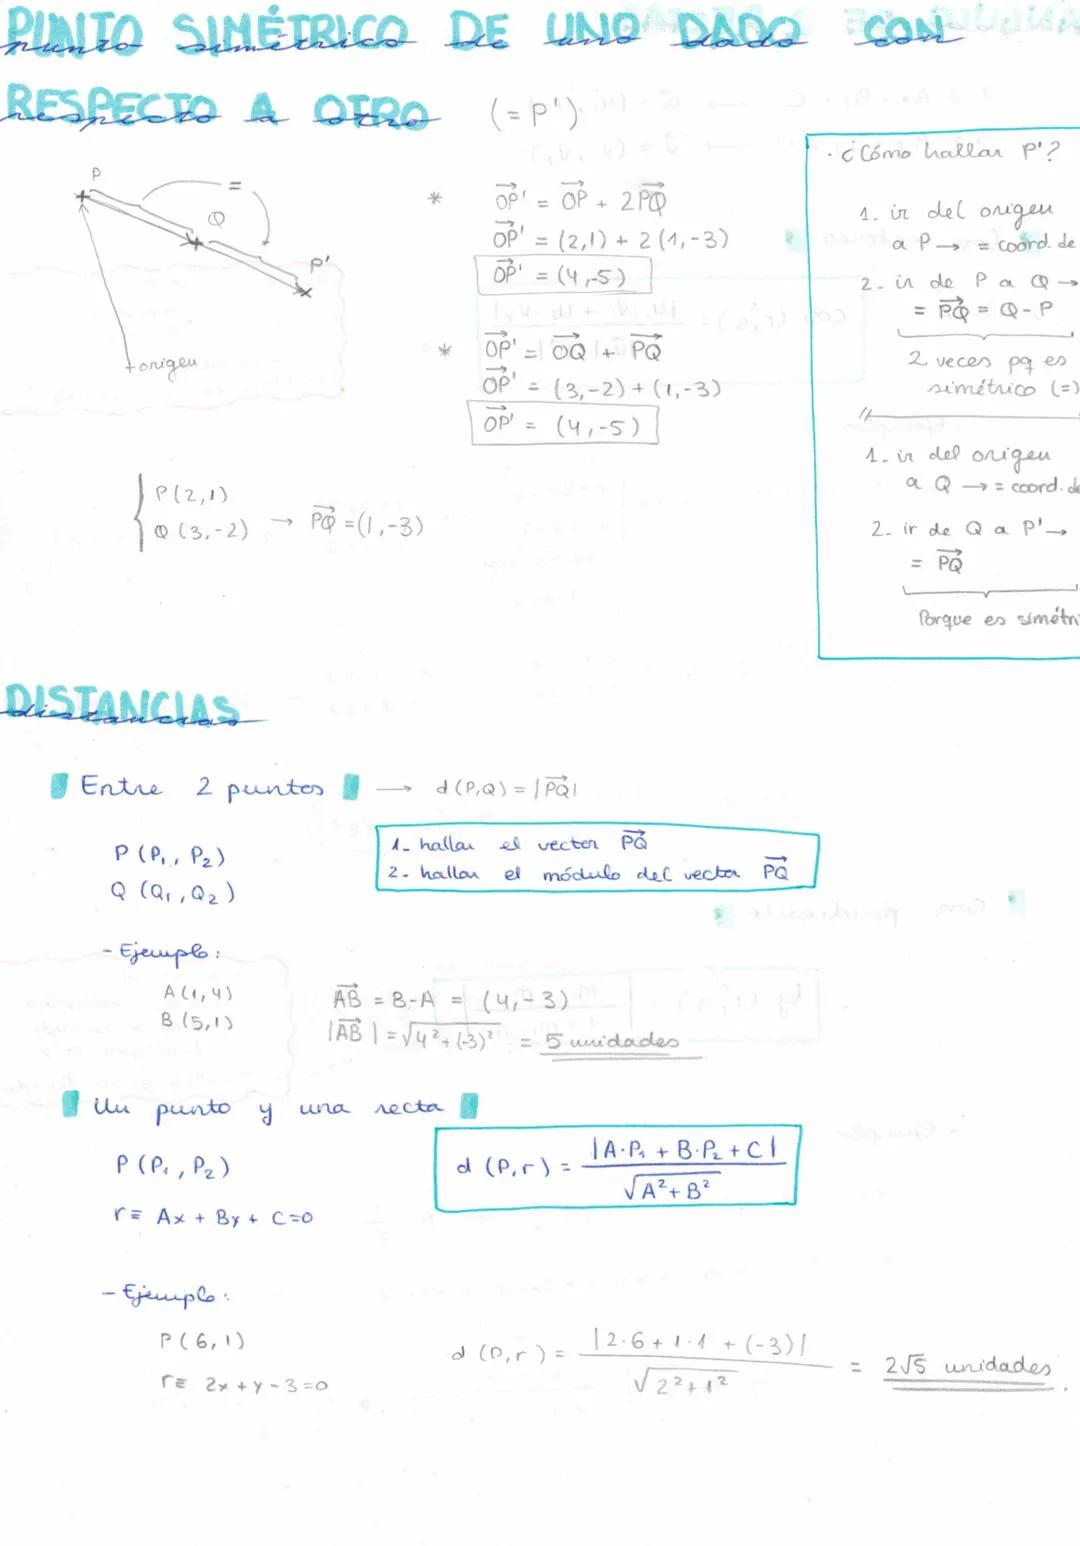 PUNTO SIMÉTRICO DE UNO DADO CON
punto simétrico de uno dado con
RESPECTO A OTRO (= P')
respecto a otro
P
=
Q
P'
origen
* OP' = OP + 2PQ
OP' = (2,1) + 2(1,-3)
OP' = (4,-5)
* OP' = OQ + PQ
OP' = (3,-2) + (1,-3)
OP' = (4,-5)
P(2,1)
Q(3,-2) → PQ = (1,-3)
· ¿Cómo hallar P'?
1. ir del origen
a P → = coord. de
2- ir de P a Q →
= PQ = Q-P
2 veces pq es
simétrico (=)
//
1- ir del origen
a Q → = coord. de
2- ir de Q a P' →
= PQ
Porque es simétri
DISTANCIAS
distancias
Entre 2 puntos → d(P,Q) = |PQ|
P (P₁, P₂)
Q (Q₁, Q₂)
1- hallar el vector PQ
2- hallar el módulo del vector PQ
- Ejemplo:
A(1,4)
B(5,1)
AB = B-A = (4,-3)
|AB| = √4²+(-3)² = 5 unidades
Un punto y una recta
P(P₁, P₂)
r≡ Ax + By + C=0
d (P,r) = |A·P₁ + B·P₂ + C| / √A²+B²
- Ejemplo:
P(6,1)
r≡ 2x+y-3=0
d (P,r) = |2·6 + 1·1 + (-3)| / √2²+1² = 2√5 unidades.